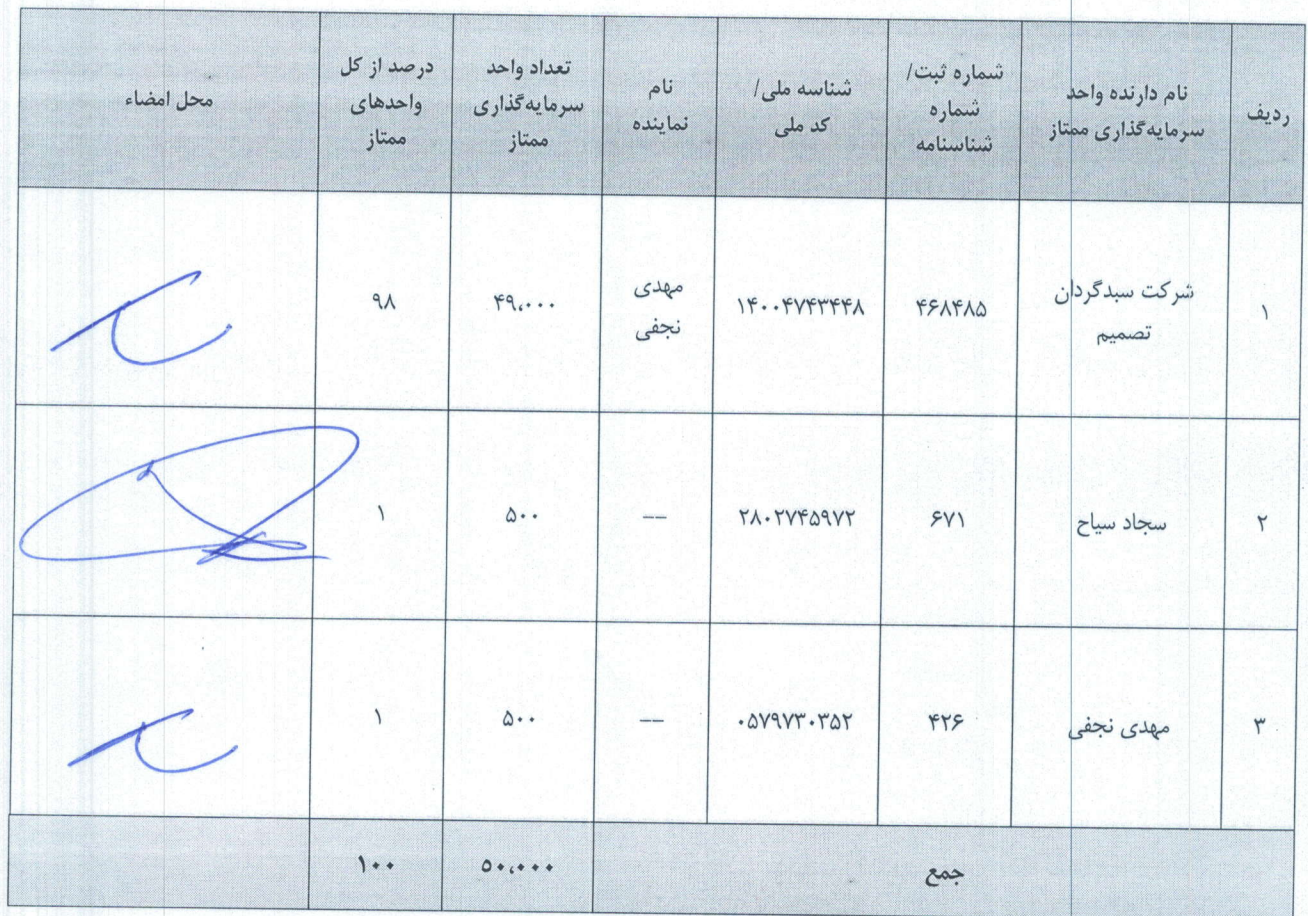 ردیف
نام دارنده واحد
سرمایه‌گذاری ممتاز
شماره ثبت/
شماره
شناسنامه
شناسه ملی/
کد ملی
نام
نماینده
تعداد واحد
سرمایه‌گذاری
ممتاز
درصد از کل
واحدهای
ممتاز
محل امضاء
۱
شرکت سبدگردان
تصمیم
۴۶۸۴۸۵
۱۴۰۰۴۷۴۳۴۴۸
مهدی
نجفی
۴۹،۰۰۰
۹۸
۲
سجاد سیاح
۶۷۱
۲۸۰۲۷۴۵۹۷۲
--
۵۰۰
۱
۳
مهدی نجفی
۴۲۶
۰۵۷۹۷۳۰۳۵۲
--
۵۰۰
۱
جمع
۵۰،۰۰۰
۱۰۰